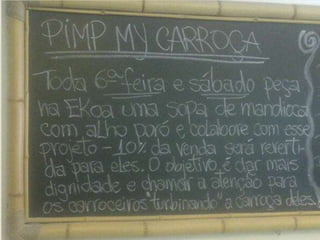 PIMP MY CARROÇA
Toda 6ª feira e sábado peça
na EKoa uma sopa de mandioca
com alho poró e colabore com esse
projeto - 10% da venda será reverti-
da para eles. O objetivo é dar mais
dignidade e chamar a atenção para
os carroceiros "turbinando" a carroça deles.